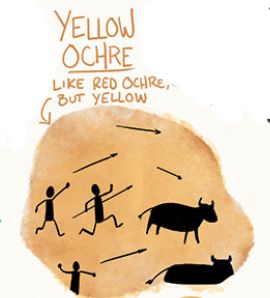 YELLOW
OCHRE
LIKE RED OCHRE,
BUT YELLOW